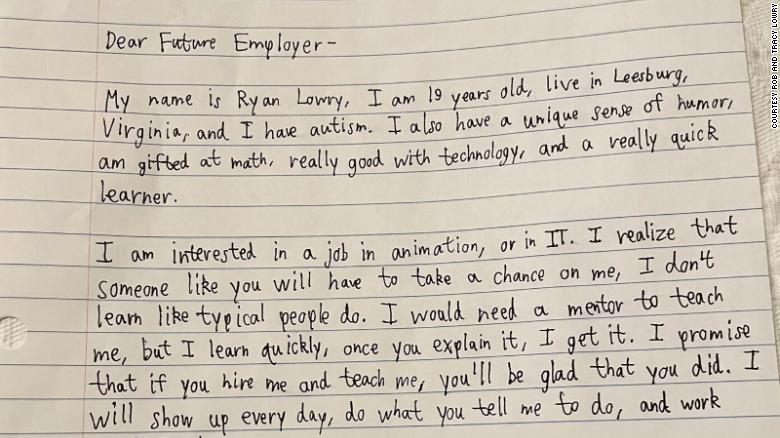 Dear Future Employer-
My name is Ryan Lowry, I am 19 years old, live in Leesburg,
Virginia, and I have autism. I also have a unique sense of humor,
am gifted at math, really good with technology, and a really quick
learner.
I am interested in a job in animation, or in IT. I realize that
someone like you will have to take a chance on me, I don't
learn like typical people do. I would need a mentor to teach
me, but I learn quickly, once you explain it, I get it. I promise
that if you hire me and teach me, you'll be glad that you did. I
will show up every day, do what you tell me to do, and work
COURTESY ROB AND TRACY LOWRY